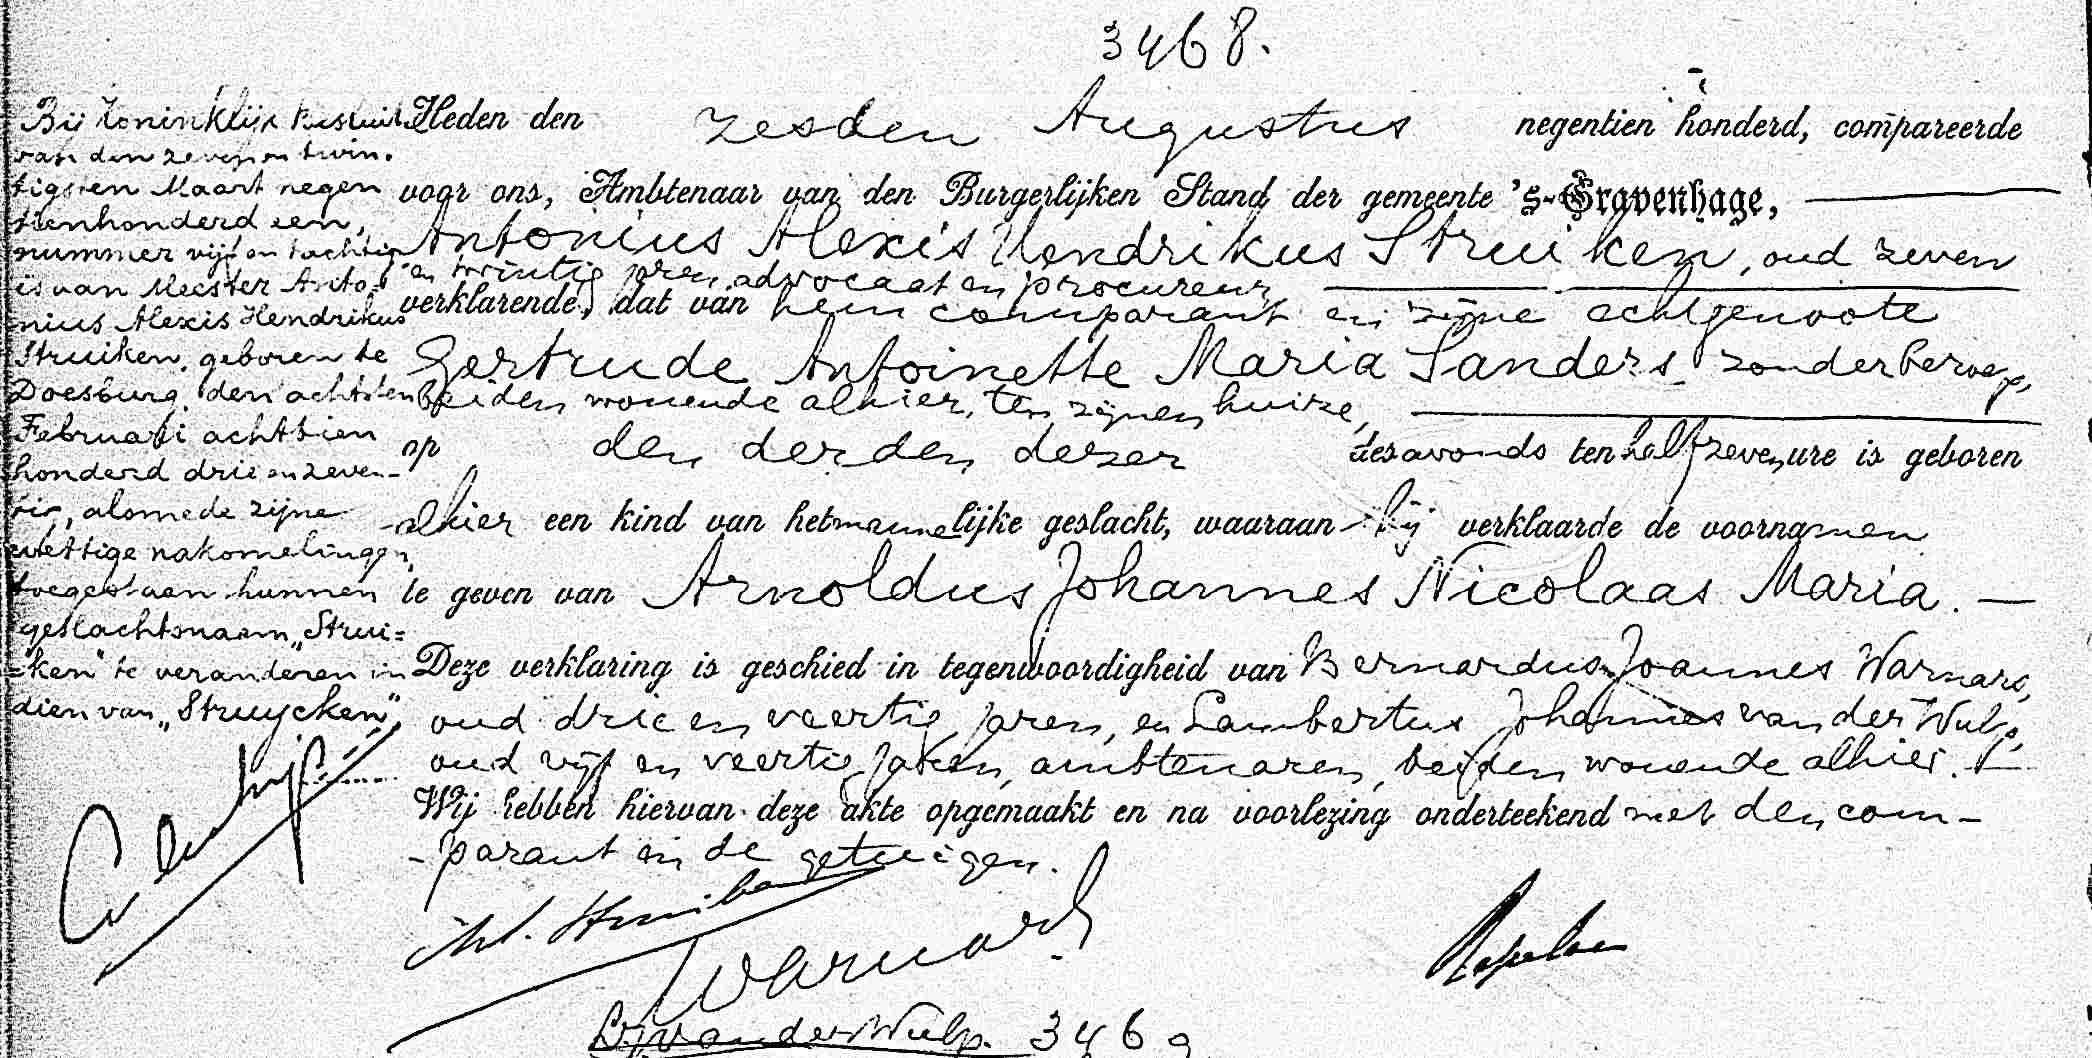 3468.
Bij Koninklijk Besluit
van den zeven en twin-
tigsten Maart negen
tienhonderd een,
nummer vijf en tachtig
is van Meester Anto-
nius Alexis Hendrikus
Struiken, geboren te
Doesburg, den achtsten
Februari achttien
honderd drie en zeven-
tig, alsmede zijne
wettige nakomelingen,
toegestaan hunnen
geslachtsnaam „Strui=
=ken" te veranderen in
dien van „Struycken".
Heden den zesden Augustus negentien honderd, compareerde
voor ons, Ambtenaar van den Burgerlijken Stand der gemeente 's-Gravenhage,
Antonius Alexis Hendrikus Struiken, oud zeven
en twintig jaren, advocaat en procureur,
verklarende, dat van hem comparant en zijne echtgenoote
Gertrude Antoinette Maria Sanders, zonder beroep,
beiden wonende alhier, ten zijnen huize,
op den derden dezer des avonds ten half zeven ure is geboren
alhier een kind van het mannelijke geslacht, waaraan hij verklaarde de voornamen
te geven van Arnoldus Johannes Nicolaas Maria. —
Deze verklaring is geschied in tegenwoordigheid van Bernardus Joannes Warnars,
oud drie en veertig jaren, en Lambertus Johannes van der Wulp,
oud vijf en veertig jaren, ambtenaren, beiden wonende alhier. —
Wij hebben hiervan deze akte opgemaakt en na voorlezing onderteekend met den com-
-parant en de getuigen.
Struiken
Warnars
L.J. van der Wulp.
3469